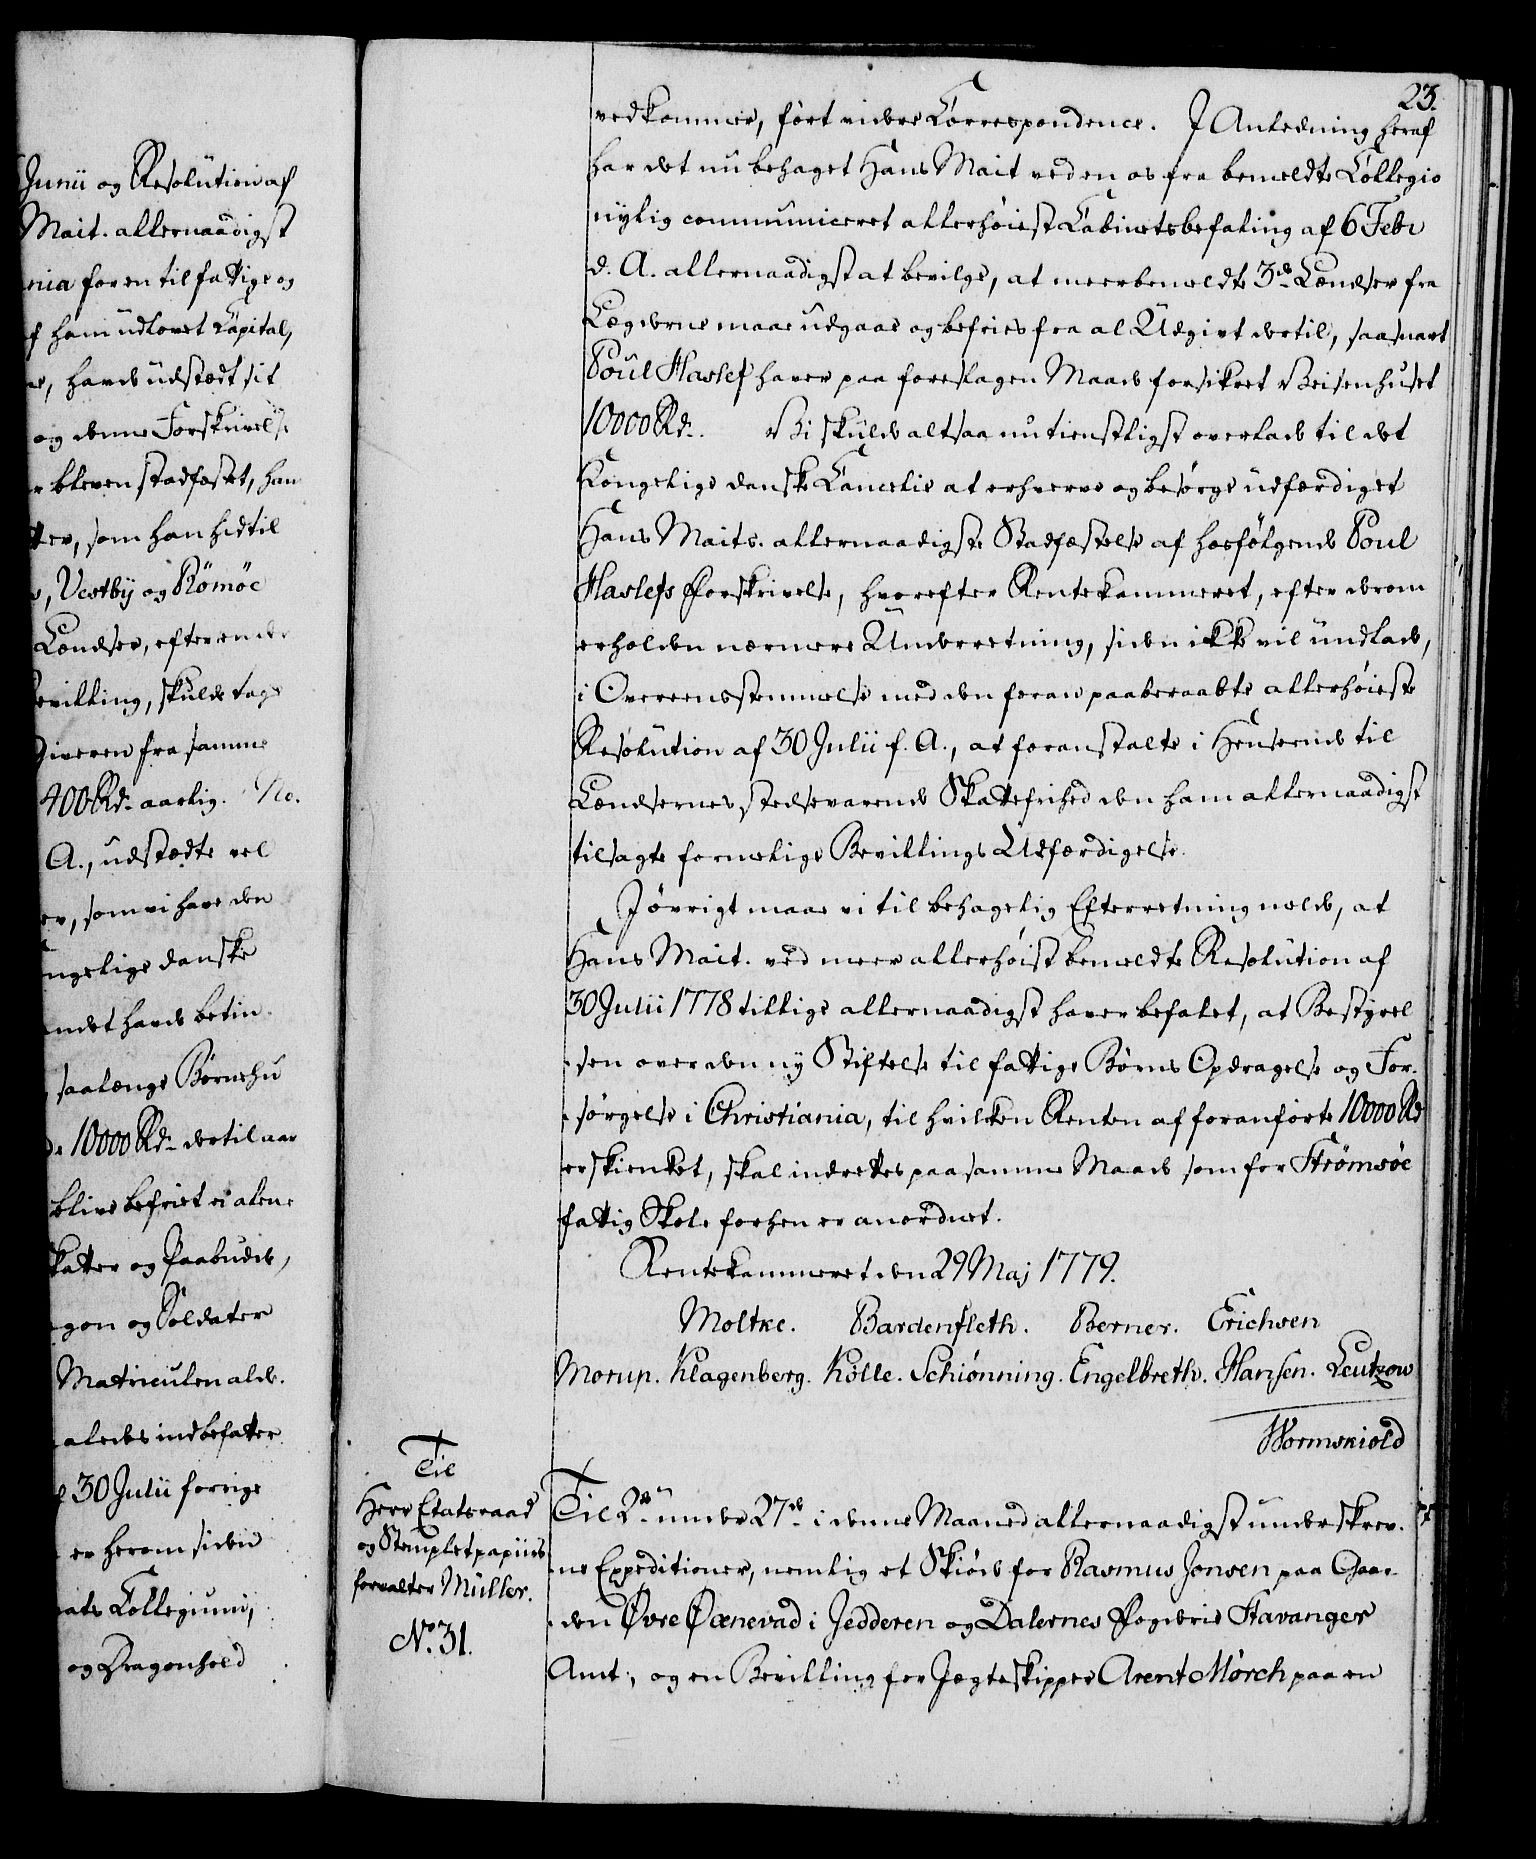 Junii og Resolution af
Mait. allernaadigst
nia for en til fattige og
f ham udlovet Capital,
, havde udstædt sit
og denne Forskrivelse
r bleven stadfæstet, han
ter, som han hidtil
, Vestby og Römöe
Lændser, efter en der
evilling, skulde tage
Giveren fra samme
400 Rd. aarlig. No.
A., udstædte vel
er, som vi have den
ngelige danske
ndet havde betin-
saalænge Börnehu
10000 Rd. dertil aar
blive befriet ei alene
katter og Paabude,
gon og Soldater
Matriculen alde.
aledes indbefatter
f 30 Julii forrige
er herom siden
ats Collegium,
og Dragonhold
23.
vedkommer, fört videre Correspondence. I Anledning heraf
har det nu behaget Hans Mait ved en os fra bemeldte Collegio
nylig communiceret allerhöiest Cabinetsbefaling af 6 Febr
d. A. allernaadigst at bevilge, at meerbemeldte 3de Lændser fra
Lægderne maae udgaae og befries fra al Udgivt dertil, saasnart
Poul Haslef haver paa foreslagen Maade forsikret Veisenhuset
10000 Rd. Vi skulde altsaa nu tienstligst overlade til det
Kongelige danske Cancelie at erhverve og besörge udfærdiget
Hans Maits. allernaadigste Stadfæstelse af hosfölgende Poul
Haslefs Forskrivelse, hvorefter Rentekammeret, efter derom
erholden nærmere Underretning, siden ikke vil undlade,
i Overeensstemmelse med den foran paaberaabte allerhöieste
Resolution af 30 Julii f. A., at foranstalte i Henseende til
Lændsernes stedsevarende Skattefrihed den ham allernaadigst
tilsagte formelige Bevillings Udfærdigelse.
Iövrigt maae vi til behagelig Efterretning melde, at
Hans Mait. ved meer allerhöist bemeldte Resolution af
30 Julii 1778 tillige allernaadigst haver befalet, at Bestyrel
-sen over den ny Stiftelse til fattige Börns Opdragelse og For-
-sörgelse i Christiania, til hvilken Renten af foranförte 10000 Rd
er skienket, skal indrettes paa samme Maade som for Strömsöe
fattig Skole forhen er anordnet.
Rentekammeret den 29 Maj 1779.
Moltke. Bardenfleth. Berner. Erichsen
Morup. Klagenberg. Kölle. Schiönning. Engelbreth. Hansen. Leutzow
Wormskiold
Til
Herr Etatsraad
og Stempletpapiirs
forvalter Müller.
No. 31.
Til 2de under 27de i denne Maaned allernaadigst underskrev-
-ne Expeditioner, nemlig et Skiöde for Rasmus Jonsen paa Gaar-
-den Øvre Øænevad i Jedderen og Dalernes Fogderie Stavanger
Amt, og en Bevilling for Jægteskipper Arent Mörch paa en